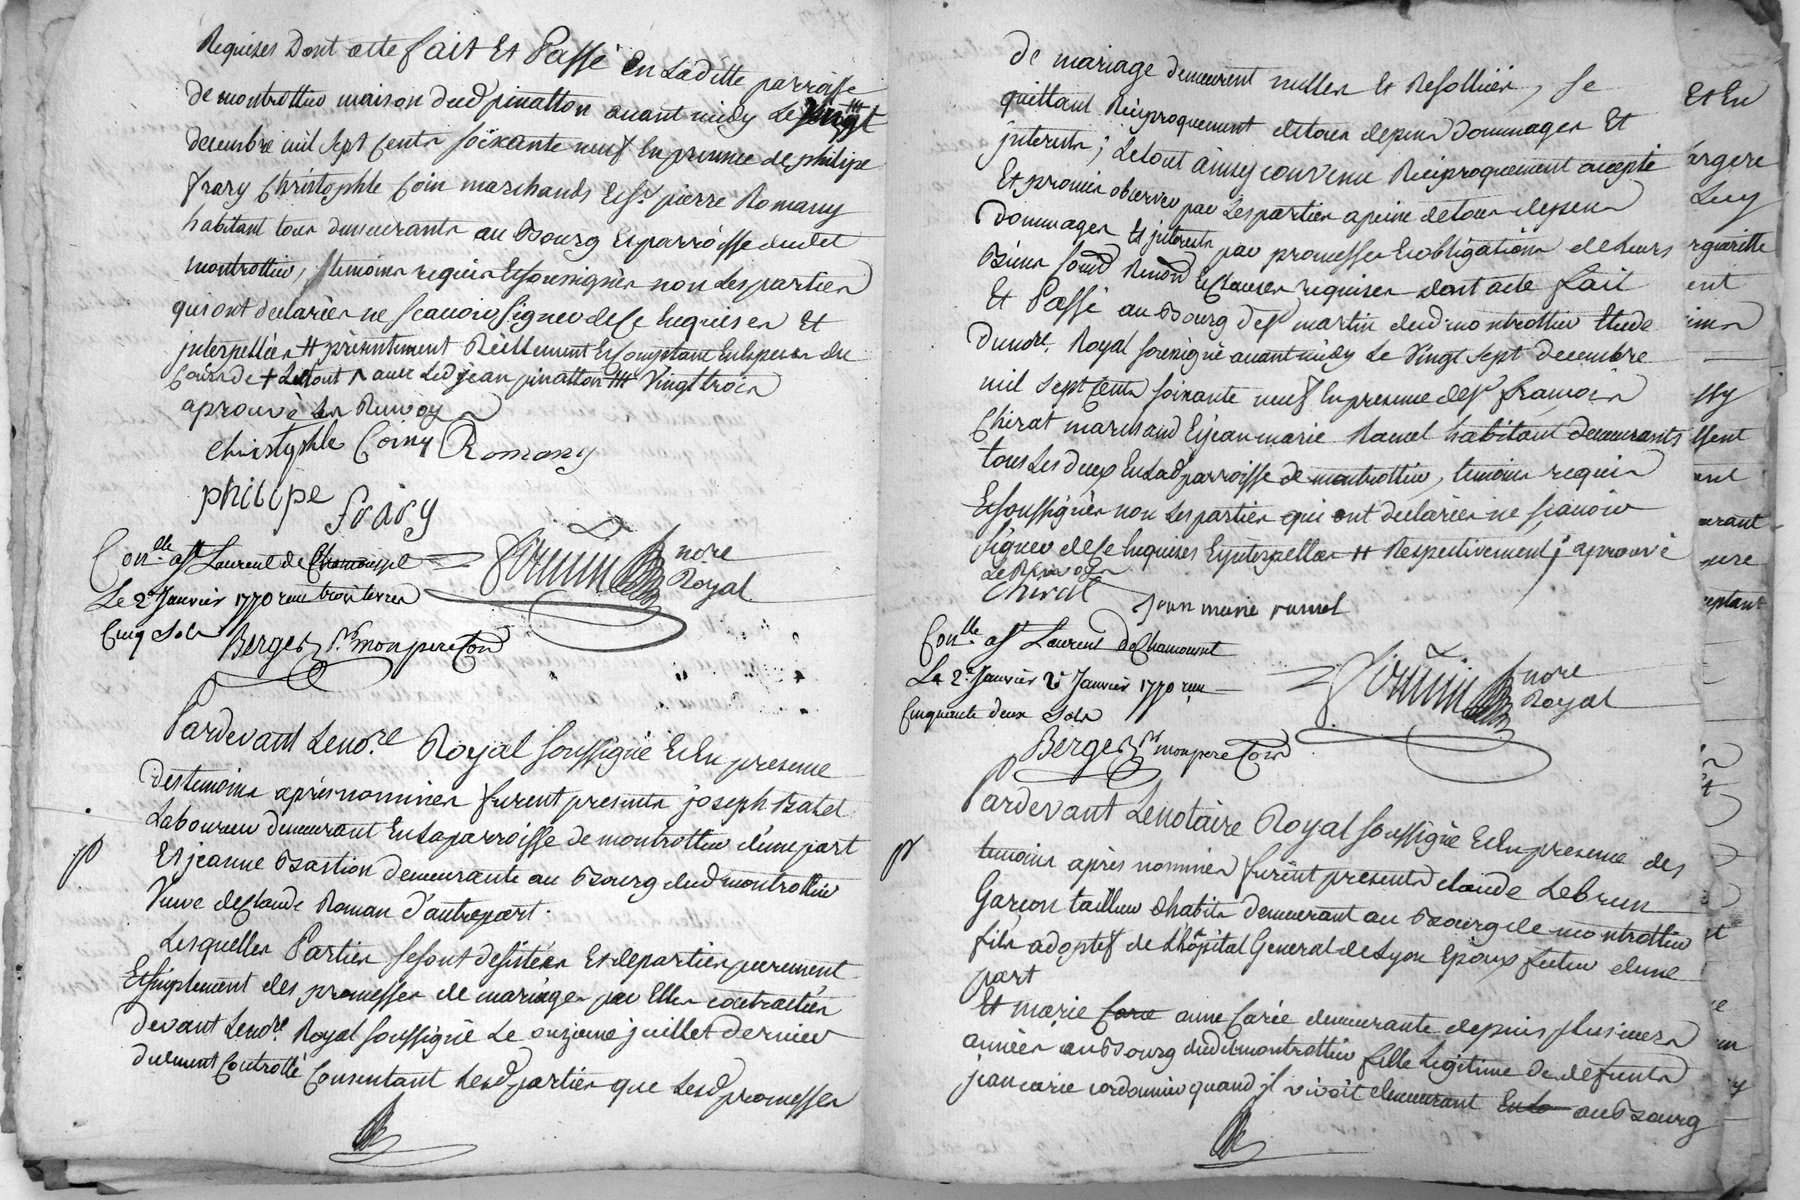 Requises Dont acte fait Et Passé En Laditte parroisse
de montrottier maison dud pinatton avant midy Le vingt ttt
decembre mil sept cents soixante neuf En presence de philipe
frary Christophle Coin marchands Et Sr pierre Romany
habitant tous demeurants au Bourg Et parroisse dudit
montrottier, temoins requis Et soussignés non Les parties
qui ont declarées ne scavoir signer de Ce Enquises Et
jnterpellées # présentement Réellement Et Comptant En Espèces du
Cours de + Letout ^ avec Led jean pinatton ttt Vingt trois
aprouvé Les Renvoy
Christophle Coiny Romany
philipe frary
Conlle a St Laurent de Chamousset
nore
Le 2e Janvier 1770 reçu trois livres
Royal
Cinq Sols Berger pr mon pere Con
Pardevant Le nore Royal soussigné Et En presence
des temoins après nommés furent presents joseph Batet
Laboureur demeurant En La parroisse de montrottier d'une part
Et jeanne Bastion demeurante au Bourg dud montrottier
Veuve de Claude Roman d'autre part.
Lesquelles Parties se sont desistées Et departies purement
Et simplement des promesses de mariage par Elles contractées
devant Le nore Royal soussigné Le onzieme juillet dernier
duement Controllé Consentant Lesd parties que Lesd promesses
de mariage demeurent nulles Et Resolliées, se
quittant Réciproquement de tous depens Dommages Et
jnterests; Le tout ainsy convenu Réciproquement accepté
Et promis observer par Les parties a peine de tous depens
Dommages Et jnterests par promesses Et obligations de Leurs
Biens soumis Renond Et Clauses requises dont acte fait
Et Passé au Bourg de St martin dud montrottier Etude
Du nore Royal soussigné avant midy Le Vingt sept decembre
mil sept Cents soixante neuf En presence de Sr francois
Chirat marchand Et jean marie Ramel habitant demeurants
tous Les deux En Lad parroisse de montrottier, temoins requis
Et soussignés non Les parties qui ont declarées ne scavoir
signer de Ce Enquises Et jnterpellées # Respectivement; aprouvé
Le Renvoy
Chirat
Jean marie ramel
Conlle a St Laurent de Chamousset
nore
Le 2e Janvier 2e Janvier 1770 reçu
Royal
Cinquante deux Sols
Berger pr mon pere Con
Pardevant Le notaire Royal soussigné Et En presence des
temoins après nommés furent presents claude Lebrun
Garcon tailleur d'habits demeurant au Bourg de montrottier
fils adoptif de L'hôpital General de Lyon Epoux futur d'une
part
Et marie Carie anne Carie demeurante depuis plusieurs
années au Bourg dudit montrottier fille Legitime de defunts
jean carie cordonnier quand il vivoit demeurant En La au Bourg